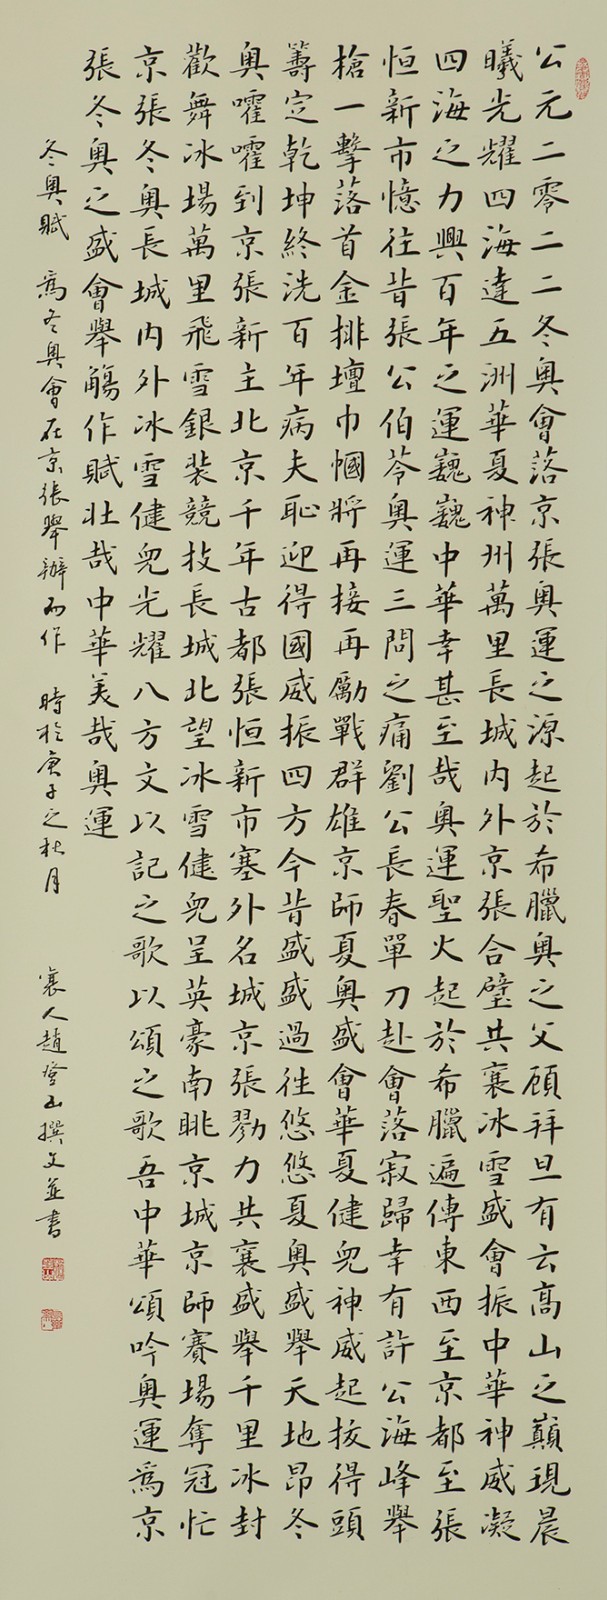 公元二零二二冬奧會落京張奧運之源起於希臘奧之父顧拜旦有云高山之巔現晨
曦光耀四海達五洲華夏神州萬里長城內外京張合璧共襄冰雪盛會振中華神威凝
四海之力興百年之運巍巍中華幸甚至哉奧運聖火起於希臘遍傳東西至京都至張
恒新市憶往昔張公伯苓奧運三問之痛劉公長春單刀赴會落寂歸幸有許公海峰舉
槍一擊落首金排壇巾幗將再接再勵戰群雄京師夏奧盛會華夏健兒神威起拔得頭
籌定乾坤終洗百年病夫恥迎得國威振四方今昔盛盛過往悠悠夏奧盛舉天地昂冬
奧嚯嚯到京張新主北京千年古都張恒新市塞外名城京張勠力共襄盛舉千里冰封
歡舞冰場萬里飛雪銀裝競技長城北望冰雪健兒呈英豪南眺京城京師賽場奪冠忙
京張冬奧長城內外冰雪健兒光耀八方文以記之歌以頌之歌吾中華頌吟奧運爲京
張冬奧之盛會舉觴作賦壯哉中華美哉奧運
冬奧賦 爲冬奧會在京張舉辦而作 時於庚子之秋月 襄人趙登山撰文並書